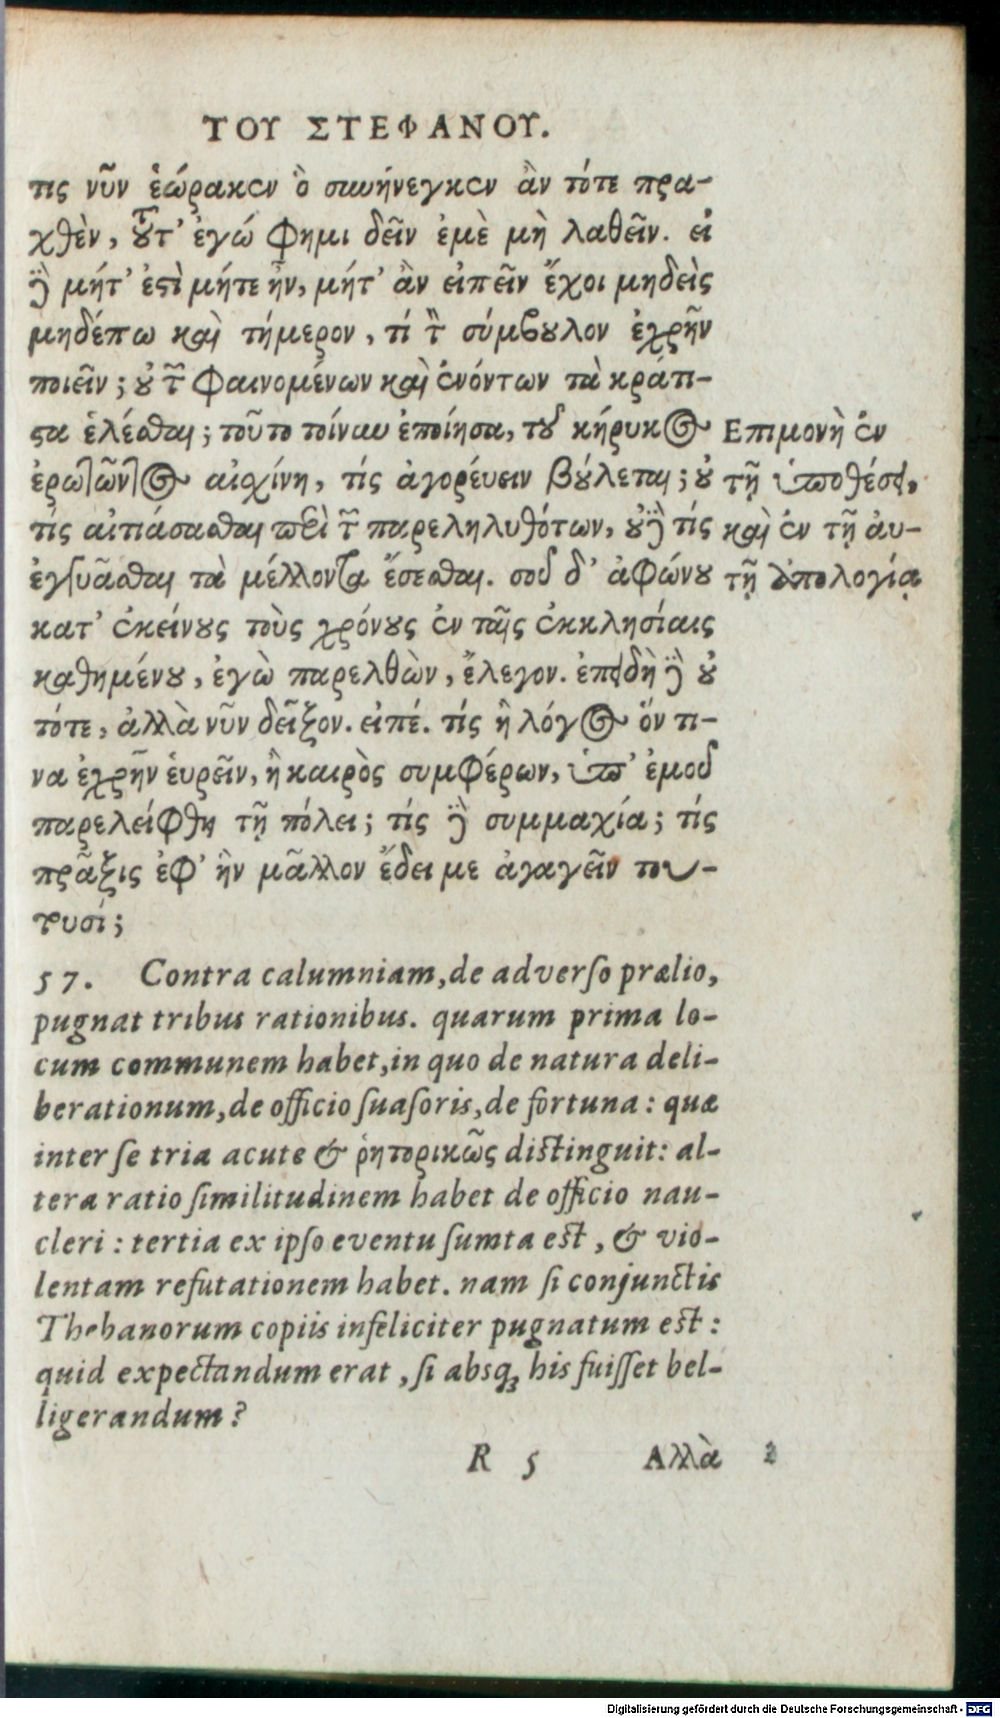 ΤΟΥ ΣΤΕΦΑΝΟΥ.
τις νῦν ἑώρακεν ὃ συνήνεγκεν ἂν τότε πρα-
χθὲν, τοῦτ' ἐγώ φημι δεῖν ἐμὲ μὴ λαθεῖν. εἰ
δὲ μήτ' ἐστὶ μήτε ἦν, μήτ' ἂν εἰπεῖν ἔχοι μηδεὶς
μηδέπω καὶ τήμερον, τί τὸν σύμβουλον ἐχρῆν
ποιεῖν; οὐ τῶν φαινομένων καὶ ἐνόντων τὰ κράτι-
στα ἑλέσθαι; τοῦτο τοίνυν ἐποίησα, τοῦ κήρυκος
ἐρωτῶντος αἰσχίνη, τίς ἀγορέυειν βούλεται; οὐ
τίς αἰτιάσασθαι περὶ τῶν παρεληλυθότων, οὐδὲ τίς
ἐγγυᾶσθαι τὰ μέλλοντα ἔσεσθαι. σοῦ δ' ἀφώνου
κατ' ἐκείνους τοὺς χρόνους ἐν ταῖς ἐκκλησίαις
καθημένου, ἐγὼ παρελθὼν, ἔλεγον. ἐπειδὴ δὲ οὐ
τότε, ἀλλὰ νῦν δεῖξον. εἰπέ. τίς ἢ λόγος ὅν τι-
να ἐχρῆν ἑυρεῖν, ἢ καιρὸς συμφέρων, ὑπ' ἐμοῦ
παρελείφθη τῇ πόλει; τίς δὲ συμμαχία; τίς
πρᾶξις ἐφ' ἣν μᾶλλον ἔδει με ἀγαγεῖν του-
τουσί;
Επιμονὴ ἐν
τῇ ὑποθέσει,
καὶ ἐν τῇ ἀυ-
τῇ ἀπολογίᾳ
57. Contra calumniam, de adverso prælio,
pugnat tribus rationibus. quarum prima lo-
cum communem habet, in quo de natura deli-
berationum, de officio suasoris, de fortuna: quæ
inter se tria acute & ῥητορικῶς distinguit: al-
tera ratio similitudinem habet de officio nau-
cleri: tertia ex ipso eventu sumta est, & vio-
lentam refutationem habet. nam si conjunctis
Thebanorum copiis infeliciter pugnatum est:
quid expectandum erat, si absq; his fuisset bel-
ligerandum?
R 5 Αλλὰ
Digitalisierung gefördert durch die Deutsche Forschungsgemeinschaft - DFG